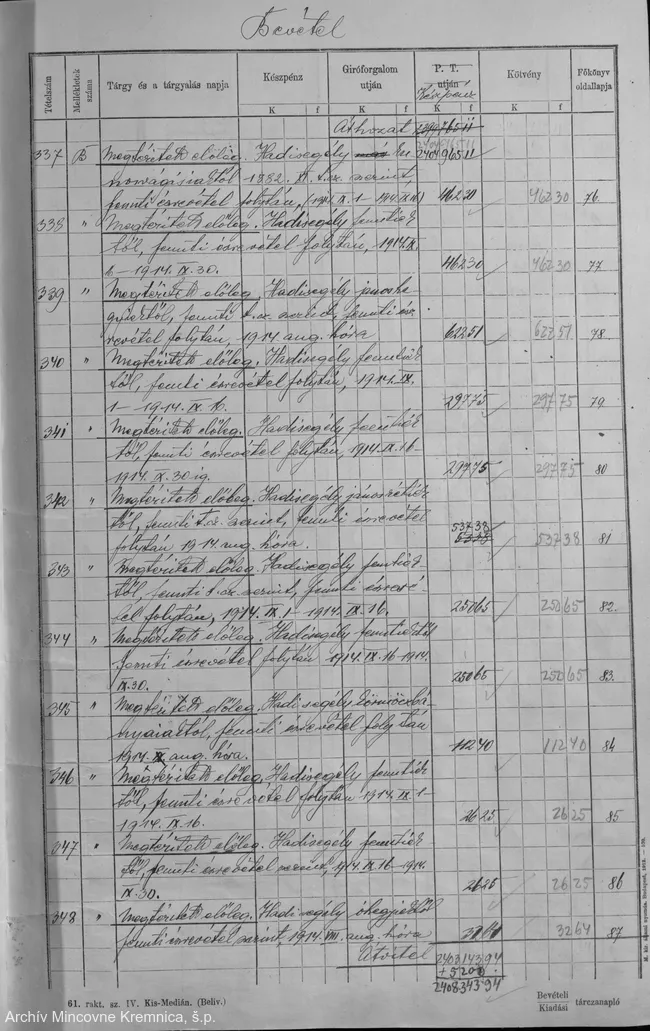 Bevétel
Tételszám
Mellékletek száma
Tárgy és a tárgyalás napja
Készpénz
Giróforgalom utján
P. T. utján
Készpénz
Kötvény
Főkönyv oldallapja
K f K f K f K f
Áthozat 2399765 11
2404965 11
337 B Megtérített előleg. Hadisegély
1882. VI. t. cz. szerint
fenti érvevétel folytán, 462 30 462 30 76.
338 " Megtérített előleg. Hadisegély fentiek
től, fenti érvevétel folytán, 1914. IX.
1914. IX. 30. 462 30 462 30 77
339 " Megtérített előleg. Hadisegély
fenti t. cz. szerint, fenti érv
revétel folytán, 1914 aug. hóra 622 51 622 51 78
340 " Megtérített előleg. Hadisegély fentiek
től, fenti érvevétel folytán, 1914. IX.
1 – 1914. IX. 16. 297 75 297 75 79
341 " Megtérített előleg. Hadisegély fentiek
től, fenti érvevétel folytán, 1914. IX. 16 –
1914. IX. 30 ig. 297 75 297 75 80
342 " Megtérített előleg. Hadisegély jánosrétiek
től, fenti t. cz. szerint, fenti érvevétel 537 38
folytán 1914 aug. hóra. 537 38 81
343 " Megtérített előleg. Hadisegély fentiek
től, fenti t. cz. szerint, fenti érvevé
tel folytán, 1914. IX. 1 – 1914. IX. 16. 250 65 250 65 82.
344 " Megtérített előleg. Hadisegély fentiektől
fenti érvevétel folytán 1914. IX. 16 – 1914.
IX. 30. 250 65 250 65 83.
345 " Megtérített előleg. Hadisegély körmöczbá
nyaiaktól, fenti érvevétel folytán
1914. aug. hóra. 112 40 112 40 84
346 " Megtérített előleg. Hadisegély fentiek
től, fenti érvevétel folytán 1914. IX. 1 –
1914. IX. 16. 26 25 26 25 85
347 " Megtérített előleg. Hadisegély fentiek
től, fenti érvevétel szerint, 1914. IX. 16 – 1914.
IX. 30. 26 25 26 25 86
348 " Megtérített előleg. Hadisegély
fenti érvevétel szerint, 1914. VIII. aug. hóra 32 64 32 64 87
Átvitel 2403143 94
+ 5200
2408343 94
61. rakt. sz. IV. Kis-Medián. (Beliv.)
Bevételi
Kiadási tárczanapló
Archív Mincovne Kremnica, š.p.